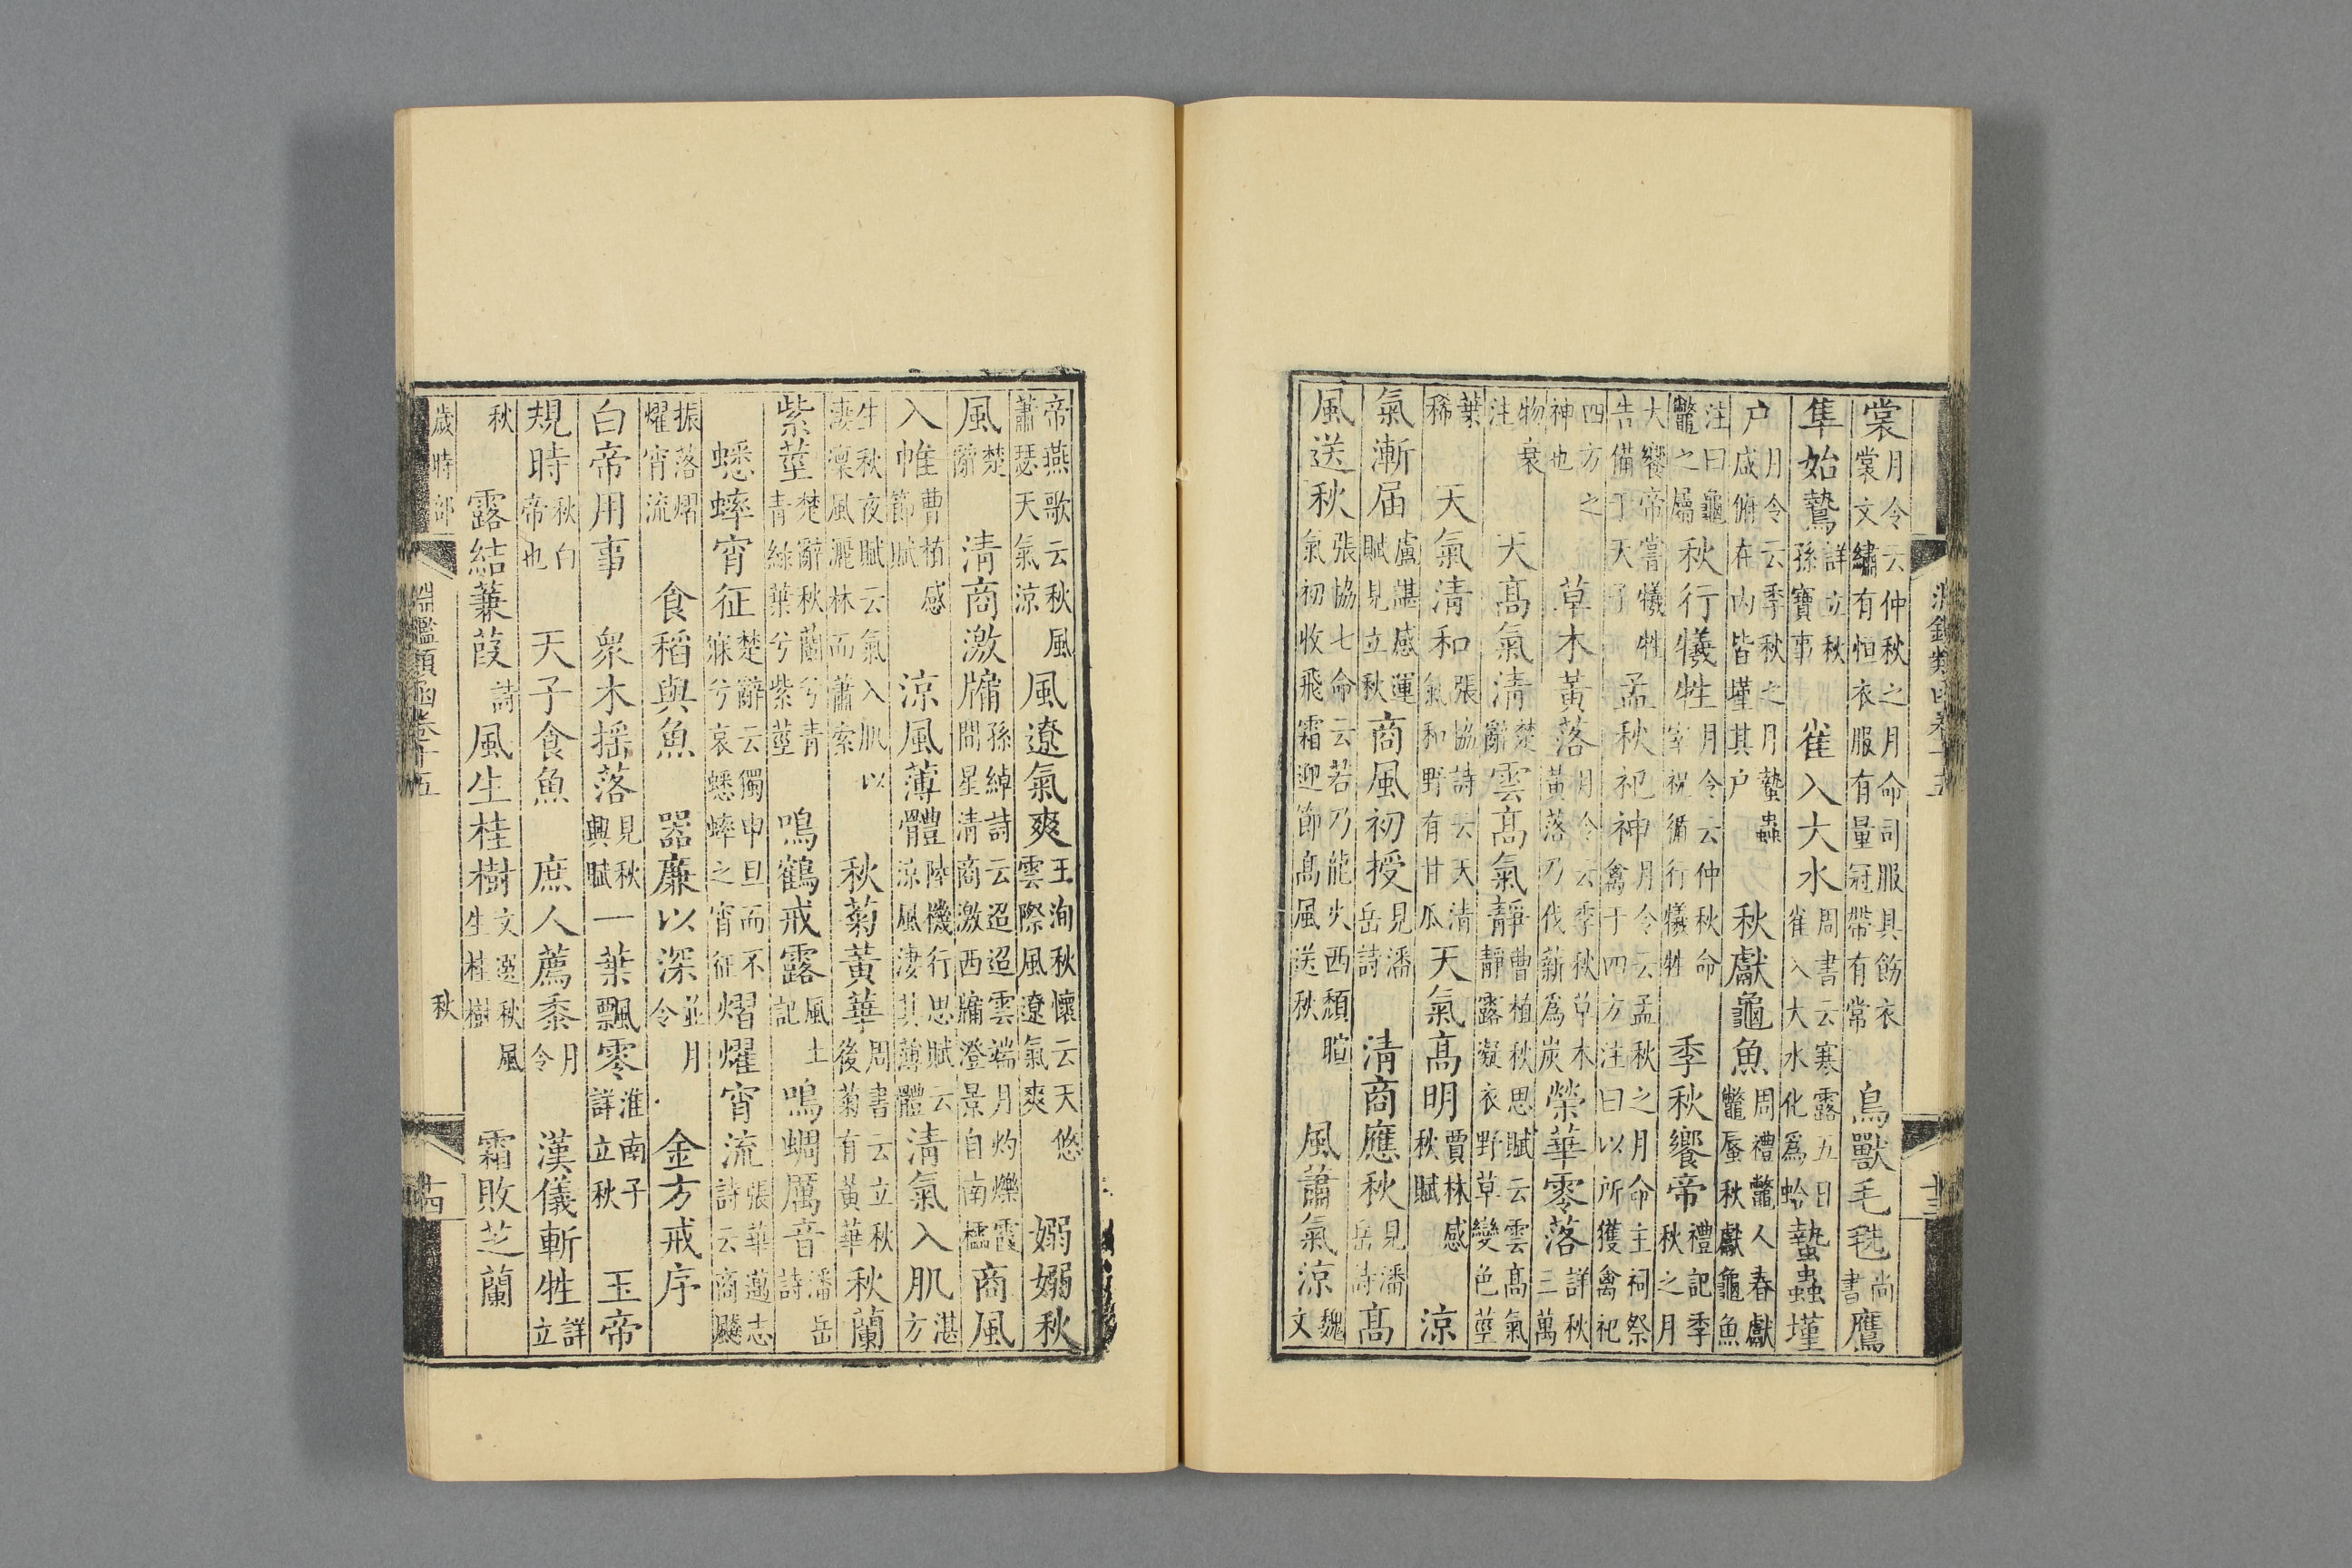 裳月令云仲秋之月命司服具飭衣裳文繡有恒衣服有量冠帶有常 鳥獸毛毨尚書 鷹
隼始鷙詳立秋孫寶事 雀入大水周書云寒露五日雀入大水化爲蛤 蟄蟲墐
户月令云季秋之月蟄蟲咸俯在内皆墐其户 秋獻龜魚周禮鼈人春獻鼈蜃秋獻龜魚
注曰龜鼈之屬 秋行犧牲月令云仲秋命宰祝循行犧牲 季秋饗帝禮記季秋之月
大饗帝嘗犧牲告備于天子 孟秋祀神月令云孟秋之月命主祠祭禽于四方注曰以所獲禽祀
四方之神也 草木黃落月令云季秋草木黃落乃伐薪爲炭 榮華零落詳秋三萬
物衰注 天高氣清楚辭 雲高氣靜曹植秋思賦云雲高氣靜露凝衣野草變色莖
葉稀 天氣清和張協詩云天清氣和野有甘瓜 天氣高明賈林感秋賦 涼
氣漸届盧諶感運賦見立秋 商風初授見潘岳詩 清商應秋見潘岳詩 高
風送秋張協七命云若乃龍火西頹暄氣初收飛霜迎節高風送秋 風蕭氣涼魏文
帝燕歌云秋風蕭瑟天氣涼 風遼氣爽王洵秋懷云天悠雲際風遼氣爽 嫋嫋秋
風楚辭 清商激牖孫綽詩云迢迢雲端月灼爍霞間星清商激西牖澄景自南櫺 商風
入帷曹植感節賦 涼風薄體陸機行思賦云涼風淒其薄體 清氣入肌湛方
生秋夜賦云氣入肌以淒凛風灑林而蕭索 秋菊黃華周書云立秋後菊有黃華 秋蘭
紫莖楚辭秋蘭兮青青綠葉兮紫莖 鳴鶴戒露風土記 鳴蜩厲音潘岳詩
蟋蟀宵征楚辭云獨申旦而不寐兮哀蟋蟀之宵征 熠燿宵流張華勵志詩云商飈
振落熠燿宵流 食稻與魚 器廉以深並月令 金方戒序
白帝用事 衆木摇落見秋興賦 一葉飄零淮南子詳立秋 玉帝
規時秋白帝也 天子食魚 庶人薦黍月令 漢儀斬牲詳立
秋 露結蒹葭詩 風生桂樹文選秋風生桂樹 霜敗芝蘭
歲時部 淵鑑類函卷十五 秋 十四